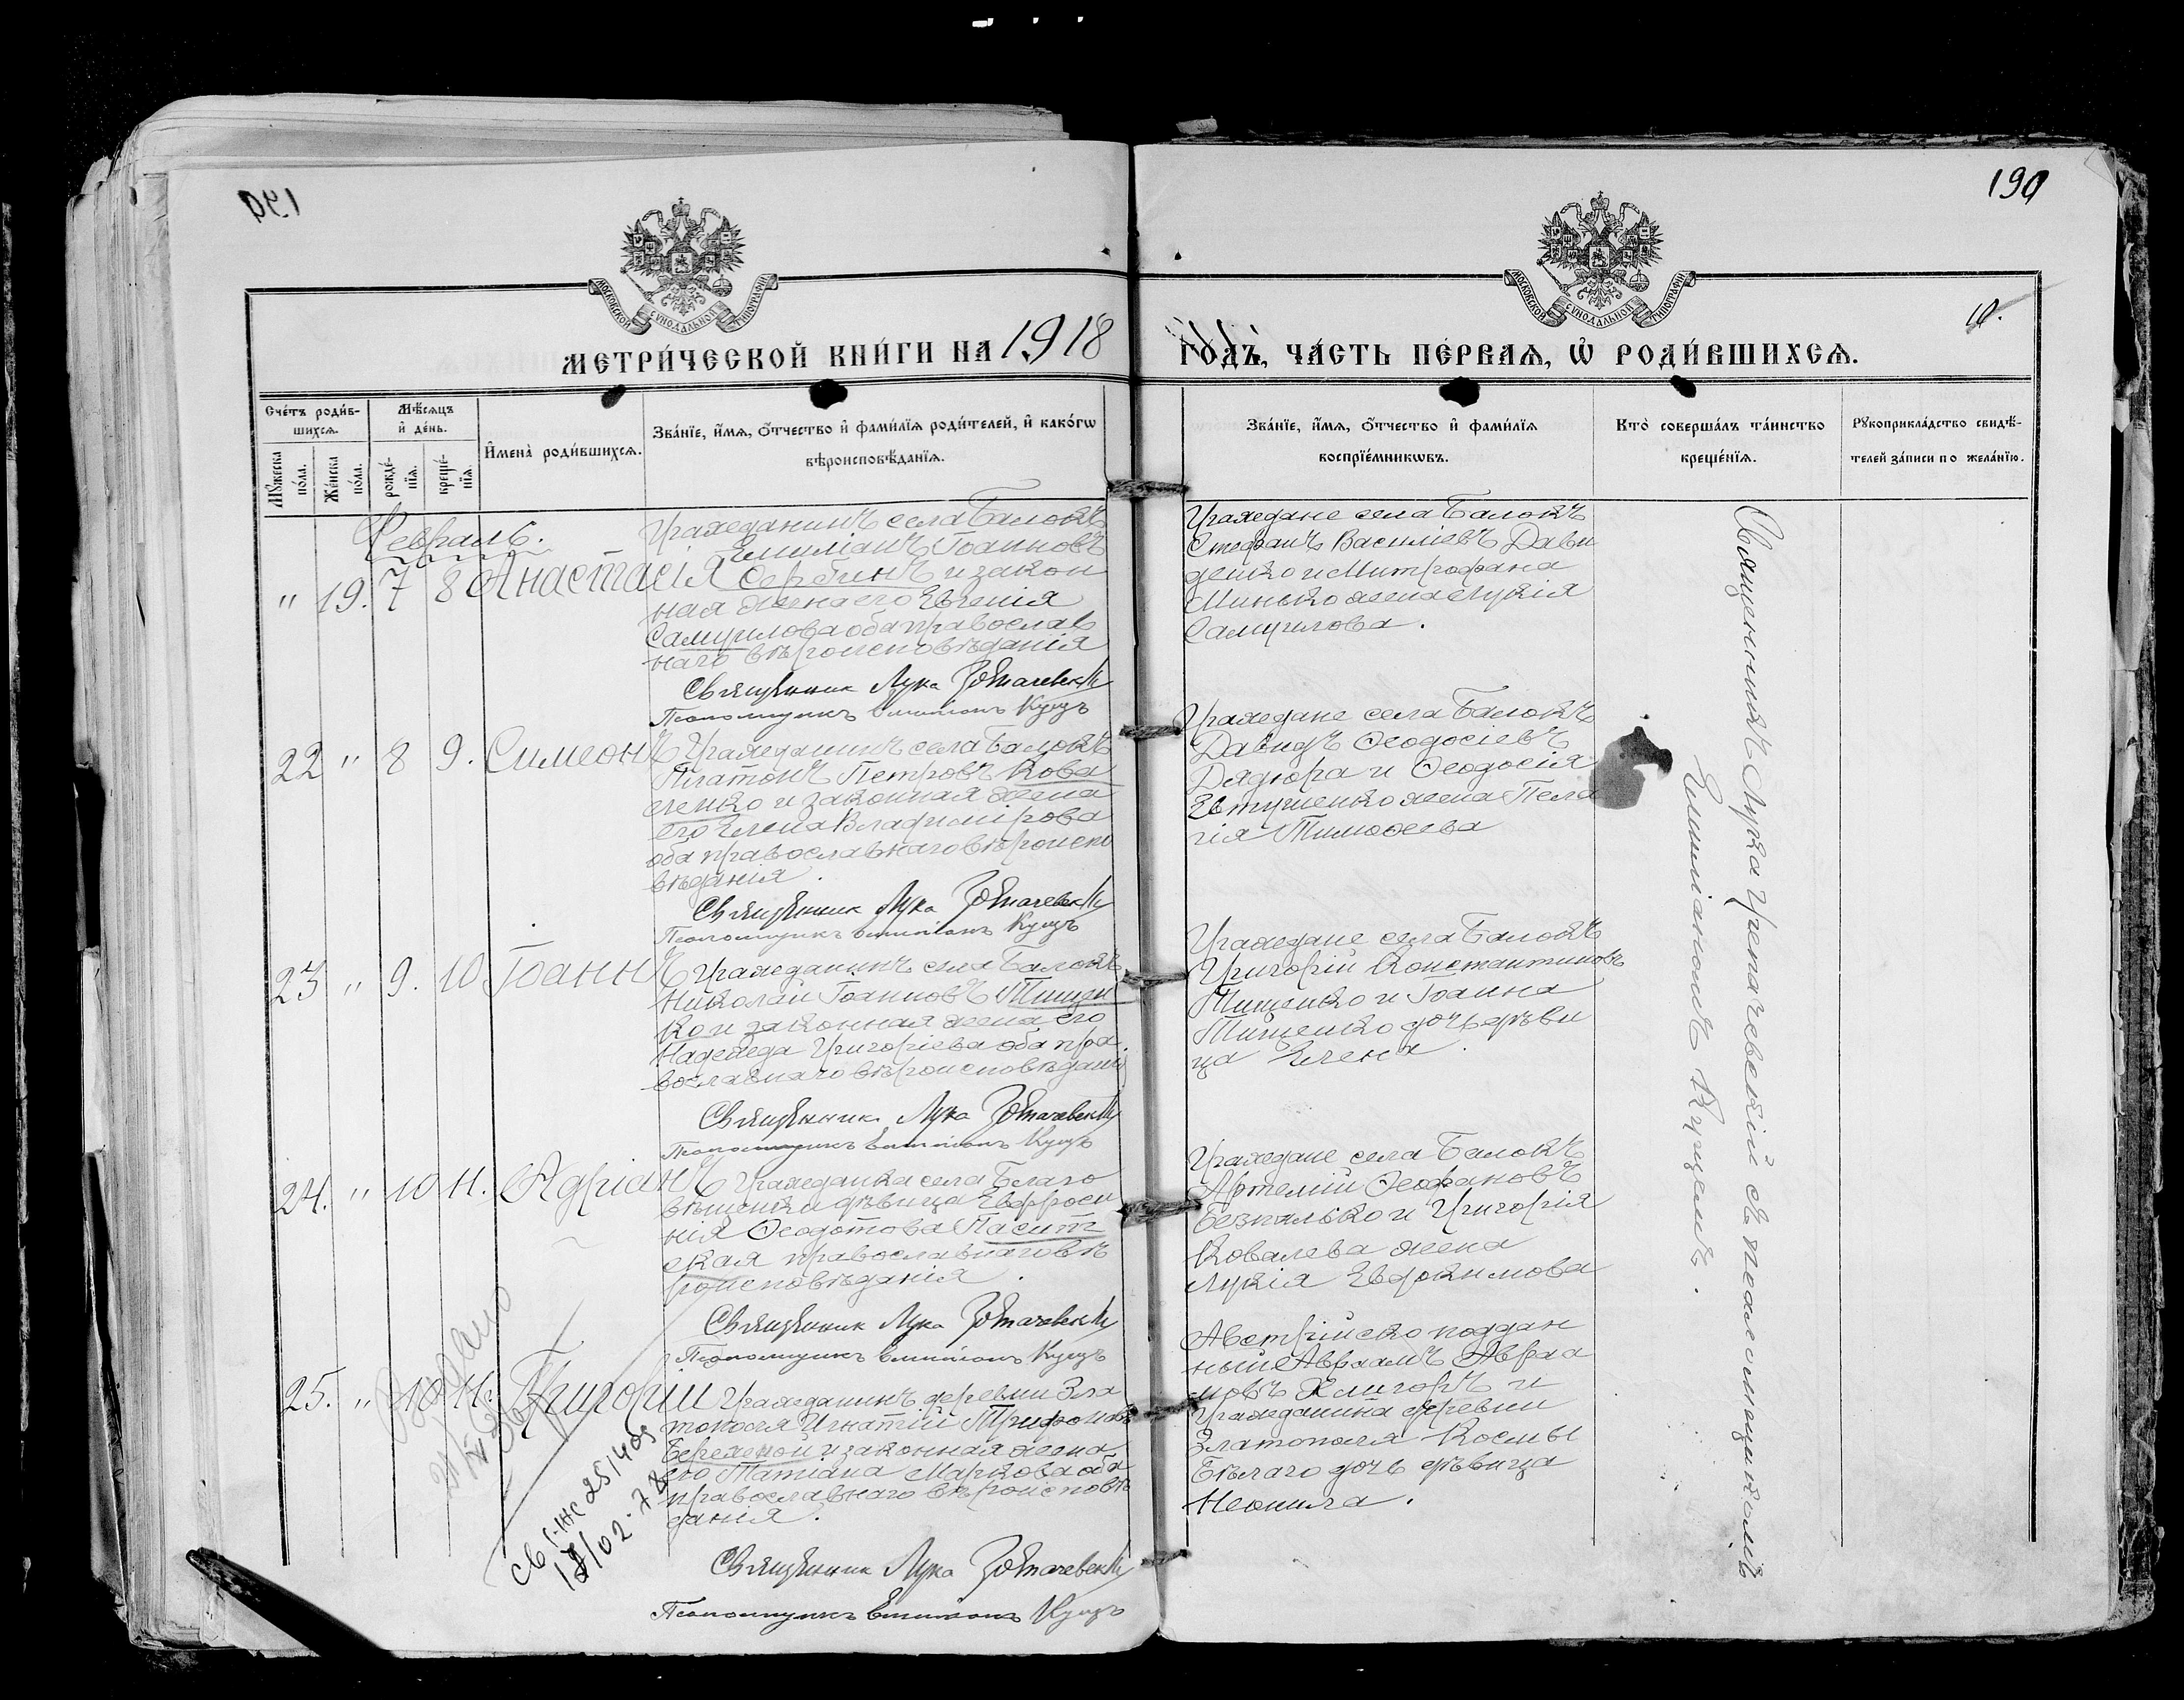 190
190
МОСКОВСКОЙ СѴНОДАЛЬНОЙ ТИПОГРАФІИ
МОСКОВСКОЙ СѴНОДАЛЬНОЙ ТИПОГРАФІИ
10.
МЕТРИ́ЧЕСКОЙ КНИ́ГИ НА 1918 ГО́ДЪ, ЧА́СТЬ ПЕ́РВАѦ, Ѡ҆ РОДИ́ВШИХСѦ.
Сче́тъ роди́в-
шихсѧ.
Мꙋ́жеска
по́ла.
Же́нска
по́ла.
Мѣ́сѧцъ
и҆ де́нь.
рожде́-
нїѧ.
креще́-
нїѧ.
И҆мена̀ роди́вшихсѧ.
Зва́нїе, и҆́мѧ, ѻ҆́тчество и҆ фами́лїѧ роди́телей, и҆ како́гѡ
вѣроисповѣ́данїѧ.
Зва́нїе, и҆́мѧ, ѻ҆́тчество и҆ фами́лїѧ
воспрїе́мникѡвъ.
Кто̀ соверша́лъ та́инство
креще́нїѧ.
Рꙋкоприкла́дство свидѣ́-
телей за́писи по жела́нїю.
Февраль.
" 19. 7 8 Анастасія
Гражданинъ села Балокъ
Емиліанъ Іоанновъ
Сербинъ и закон
ная жена его Евгенія
Самуилова оба православ
наго вѣроисповѣданія
Священник Лука
Псаломщикъ Емиліанъ Куцъ
Граждане села Балокъ
Стефанъ Василіевъ Дави
денко и Митрофана
Минько жена Лукія
Самуилова.
22 " 8 9. Симеонъ
Гражданинъ села Балокъ
Платонъ Петровъ Кова
ленко и законная жена
его Елена Владимірова
оба православнаго вѣроиспо
вѣданія.
Священник Лука
Псаломщикъ Емиліанъ Куцъ
Граждане села Балокъ
Давидъ Ѳеодосіевъ
Дядюра и Ѳеодосія
Евтушенко жена Пела
гія Тимоѳеева
23 " 9. 10 Іоаннъ
Гражданинъ села Балокъ
Николай Іоанновъ Тищен
ко и законная жена его
Надежда Григоріева оба пра
вославнаго вѣроисповѣданія
Священник Лука
Псаломщикъ Емиліанъ Куцъ
Граждане села Балокъ
Григорій Константиновъ
Тищенко и Іоанна
Тищенко дочь дѣви
ца Елена.
24. " 10 11. Адріанъ
Гражданка села Благо
вѣщенки дѣвица Евфроси
нія Ѳеодотова Пасит
ская православнаго вѣ
роисповѣданія.
Священник Лука
Псаломщикъ Емиліанъ Куцъ
Граждане села Балокъ
Артемій Ѳеофановъ
Безпалько и Григорія
Ковалева жена
Лукія Евфокимова
25. " 10 11. Григорій
Гражданинъ деревни Зла
тополя Игнатій Трифоновъ
Бережной и законная жена
его Татіана Маркова оба
православнаго вѣроисповѣ
данія.
Священник Лука
Псаломщикъ Емиліанъ Куцъ
Австрійско поддан
ный Авраамъ Авраа
мовъ и
Гражданина деревни
Златополя Космы
Бѣлаго дочь дѣвица
Неонила.
Священникъ Лука съ псаломщикомъ
Емиліаномъ Куцемъ.